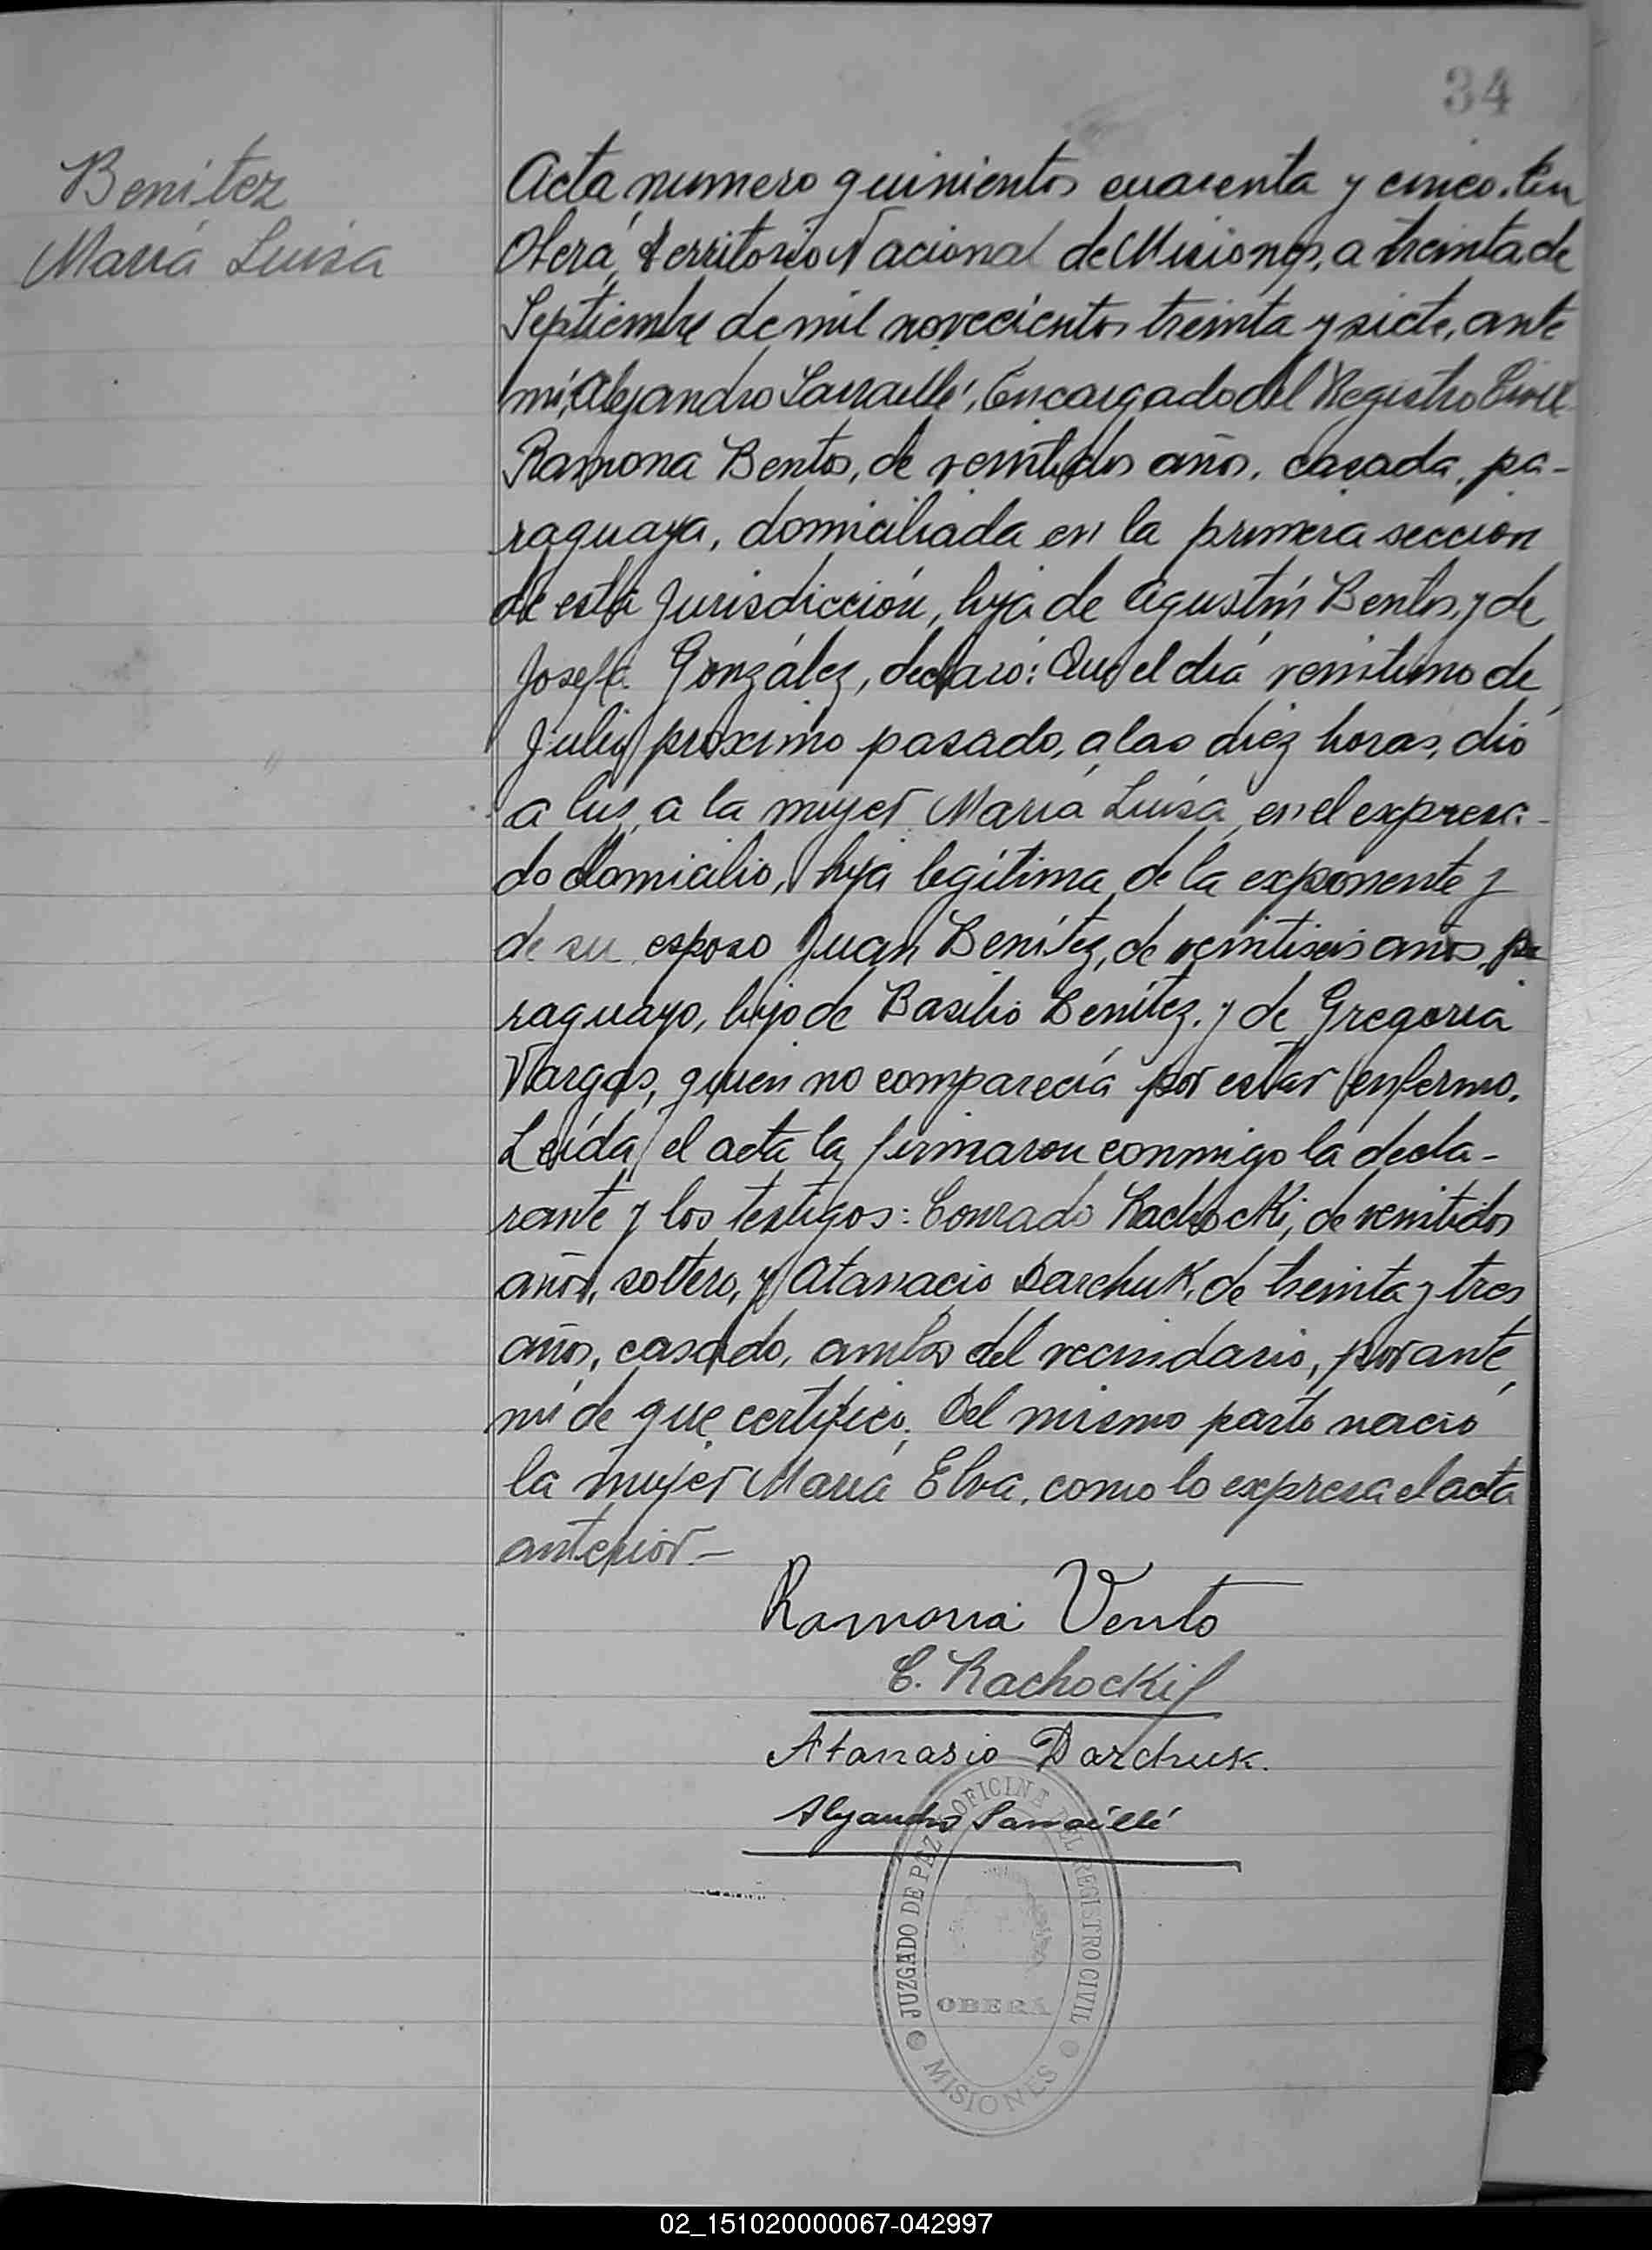 34
Benítez
María Luisa
Acta numero quinientos cuarenta y cinco. En
Oberá, Territorio Nacional de Misiones, a treinta de
Septiembre de mil novecientos treinta y siete, ante
mí, Alejandro Sarraillé, Encargado del Registro Civil
Ramona Bentos, de veintidos años, casada, pa-
raguaya, domiciliada en la primera seccion
de esta Jurisdicción, hija de Agustín Bentos, y de
Josefa González, declaró: Que el día veintiuno de
Julio próximo pasado, a las diez horas, dió
a lus, a la mujer María Luisa, en el expresa-
do domicilio, hija legítima de la exponente y
de su esposo Juan Benítez, de veintiseis años, pa
raguayo, hijo de Basilio Benítez. y de Gregoria
Vargas, quien no comparecía por estar enfermo.
Leída el acta la firmaron conmigo la decla-
rante y los testigos: Conrado Rachocki, de veintidos
años, soltero, y Atanacio Darchuk, de treinta y tres
años, casado, ambos del vecindario, por ante
mí de que certifico. Del mismo parto nació
la mujer María Elva, como lo expresa el acta
anterior.-
Ramona Vento
C. Rachocki
Atanasio Darchuk.
Alejandro Sarraillé
JUZGADO DE PAZ OFICINA DEL REGISTRO CIVIL
OBERÁ
MISIONES
02_151020000067-042997